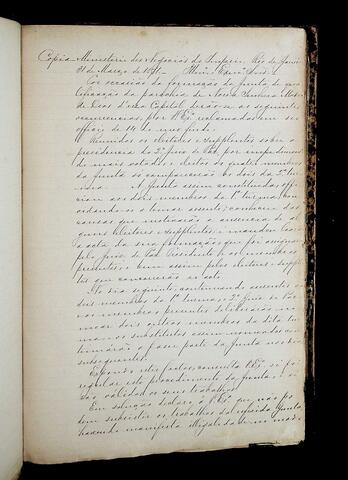 Copia - Ministerio dos Negocios do Imperio. Rio de Janeiro
31 de Março de 1871 - Illmo e Exmo Senr.
Por occasião da formação da junta de qua
lificação da parochia de Nossa Senhora Mãe
de Deos d'essa Capital, derão-se as seguintes
occurrencias, por V. Exª. relatadas em seo
officio de 14 de mez findo.
Reunidos os eleitores e supplentes sobre a
presidencia do 2º Juiz de Paz,
de mais votado, e eleitos os quatro membros
da junta só comparecerão os dois da 2ª tur
ma. A Junta assim constituida offi
ciou aos dois membros da 1ª turma, con
vidando-os a tomar assento;
causas que motivarão a ausencia de al
guns eleitores e supplentes; e mandou lavrar
a acta da sua formação, que foi assigna
da pelo Juiz de Paz Presidente e os membros
presentes, e bem assim pelos eleitores e supplen
tes que concorrerão ao acto.
No dia seguinte, continuando ausentes os
dois membros da 1ª turma, o 2º Juiz de Paz
e os membros presentes deliberarão no
mear dois outros membros da dita tur
ma, os substitutos assim nomeados con
tinuarão a fazer parte da Junta nos dias
subsequentes.
Expondo estes factos, consulta V. Exª. si foi
regular este procedimento da Junta, e si
são validos os seus trabalhos.
Em solução declaro a V. Exª. que não po
dem subsistir os trabalhos da referida Junta,
havendo manifesta illegalidade no modo